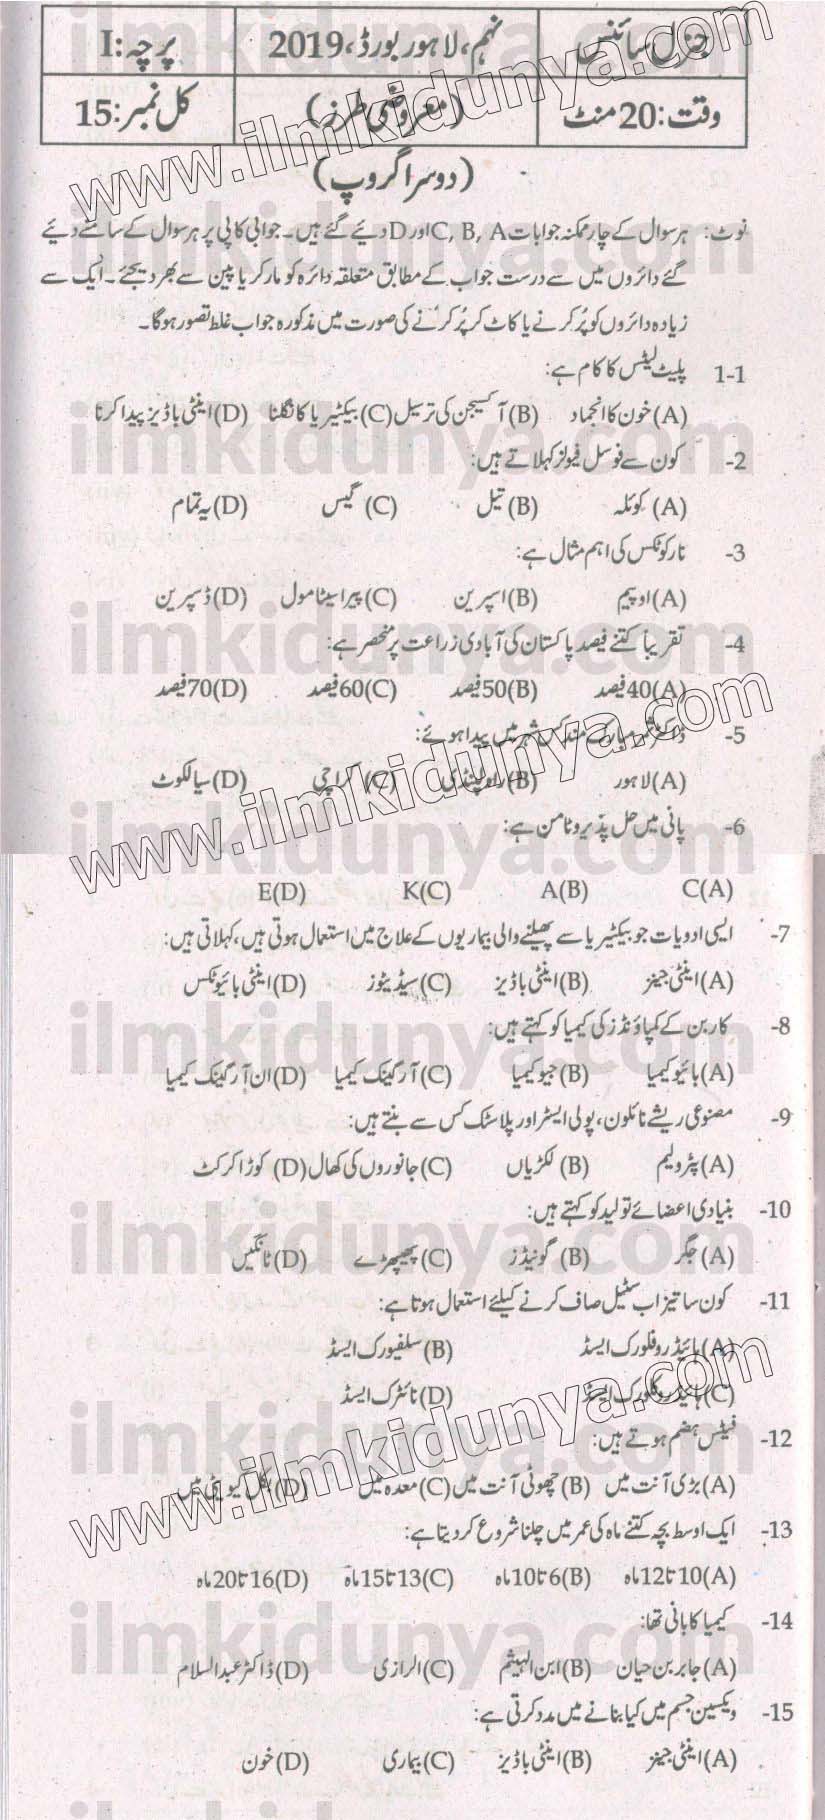 جنرل سائنس نہم، لاہور بورڈ، 2019 پرچہ: I
وقت: 20 منٹ (معروضی طرز) کل نمبر: 15
(دوسرا گروپ)
نوٹ: ہر سوال کے چار ممکنہ جوابات C, B, A اور D دیئے گئے ہیں۔ جوابی کاپی پر ہر سوال کے سامنے دیئے
گئے دائروں میں سے درست جواب کے مطابق متعلقہ دائرہ کو مارکر یا پین سے بھر دیجئے۔ ایک سے
زیادہ دائروں کو پُر کرنے یا کاٹ کر پُر کرنے کی صورت میں مذکورہ جواب غلط تصور ہوگا۔
1-1 پلیٹ لیٹس کا کام ہے:
(A) خون کا انجماد (B) آکسیجن کی ترسیل (C) بیکٹیریا کا نگلنا (D) اینٹی باڈیز پیدا کرنا
2- کون سے فوسل فیولز کہلاتے ہیں:
(A) کوئلہ (B) تیل (C) گیس (D) یہ تمام
3- نارکوٹکس کی اہم مثال ہے:
(A) اوپیم (B) اسپرین (C) پیراسیٹامول (D) ڈسپرین
4- تقریباً کتنے فیصد پاکستان کی آبادی زراعت پر منحصر ہے:
(A) 40 فیصد (B) 50 فیصد (C) 60 فیصد (D) 70 فیصد
5- ڈاکٹر ثمر مبارک مند کس شہر میں پیدا ہوئے:
(A) لاہور (B) راولپنڈی (C) کراچی (D) سیالکوٹ
6- پانی میں حل پذیر وٹامن ہے:
C(A) A(B) K(C) E(D)
7- ایسی ادویات جو بیکٹیریا سے پھیلنے والی بیماریوں کے علاج میں استعمال ہوتی ہیں، کہلاتی ہیں:
(A) اینٹی جینز (B) اینٹی باڈیز (C) سیڈیٹوز (D) اینٹی بائیوٹکس
8- کاربن کے کمپاؤنڈز کی کیمیا کو کہتے ہیں:
(A) بائیو کیمیا (B) جیو کیمیا (C) آرگینک کیمیا (D) ان آرگینک کیمیا
9- مصنوعی ریشے نائلون، پولی ایسٹر اور پلاسٹک کس سے بنتے ہیں:
(A) پٹرولیم (B) لکڑیاں (C) جانوروں کی کھال (D) کوڑا کرکٹ
10- بنیادی اعضائے تولید کو کہتے ہیں:
(A) جگر (B) گونیڈز (C) پھیپھڑے (D) ٹانگیں
11- کون سا تیزاب سٹیل صاف کرنے کیلئے استعمال ہوتا ہے:
(A) ہائیڈروفلورک ایسڈ (B) سلفیورک ایسڈ
(C) ہائیڈروکلورک ایسڈ (D) نائٹرک ایسڈ
12- فیٹس ہضم ہوتے ہیں:
(A) بڑی آنت میں (B) چھوٹی آنت میں (C) معدہ میں (D) بکل کیویٹی میں
13- ایک اوسط بچہ کتنے ماہ کی عمر میں چلنا شروع کر دیتا ہے:
(A) 10 تا 12 ماہ (B) 6 تا 10 ماہ (C) 13 تا 15 ماہ (D) 16 تا 20 ماہ
14- کیمیا کا بانی تھا:
(A) جابر بن حیان (B) ابن الہیثم (C) الرازی (D) ڈاکٹر عبدالسلام
15- ویکسین جسم میں کیا بنانے میں مدد کرتی ہے:
(A) اینٹی جینز (B) اینٹی باڈیز (C) بیماری (D) خون
www.ilmkidunya.com
www.ilmkidunya.com
www.ilmkidunya.com
ilmkidunya.com
ilmkidunya.com
ilmkidunya.com
ilmkidunya.com
ilmkidunya.com
ilmkidunya.com
ilmkidunya.com
ilmkidunya.com